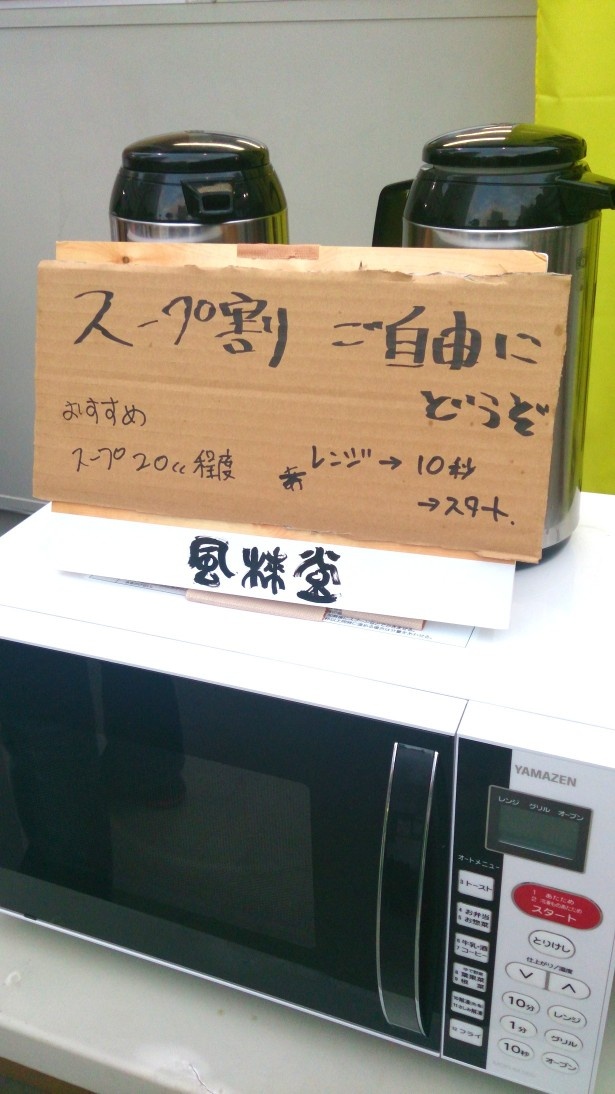 スープ割 ご自由に
どうぞ
おすすめ
スープ20cc程度
レンジ→10秒
→スタート.
風株堂
YAMAZEN
レンジ グリル オーブン
オートメニュー
3 トースト
4 お弁当
5 お惣菜
6 牛乳・酒
7 コーヒー
8 葉果菜
9 根菜
12 フライ
1 あたため
スタート
とりけし
仕上がり/温度
10分
レンジ
1分
グリル
10秒
オーブン